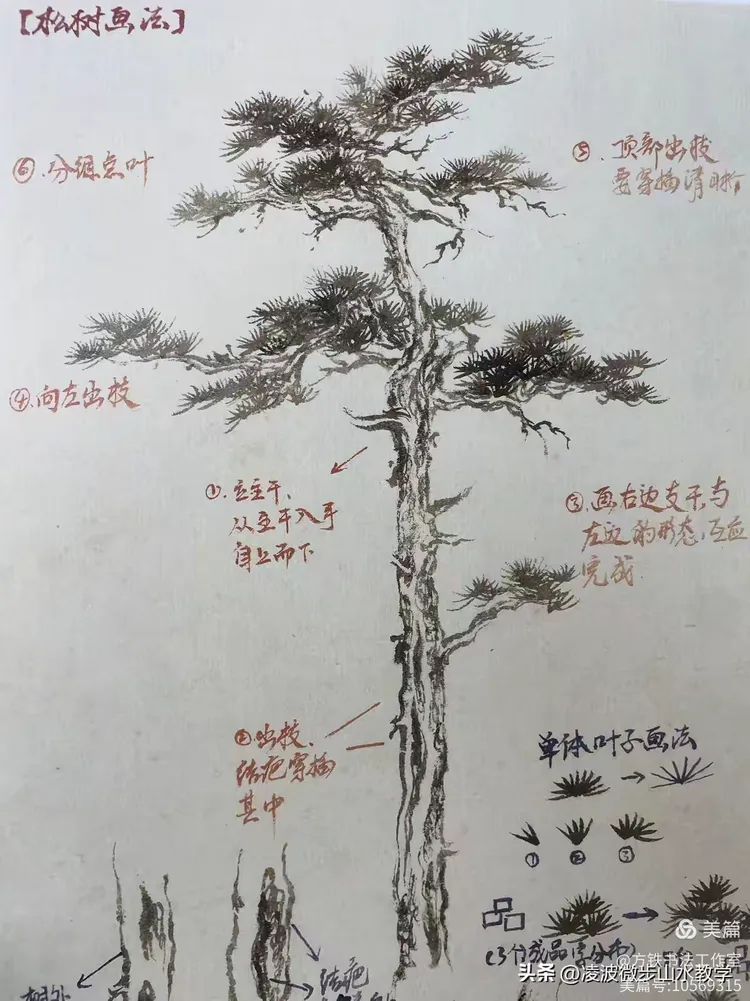 【松树画法】
⑥.分组点叶
⑤.顶部出枝
要穿插清晰
④向左出枝
①.立主干、
从主干入手
自上而下
③画右边支干与
左边的形态,互应
完成
②出枝、
结疤穿插
其中
单体叶子画法
① ② ③
(3个成品字分布)
结疤
美篇
@方铁书法工作室
头条 @凌波微步山水教学
美篇号:10569315